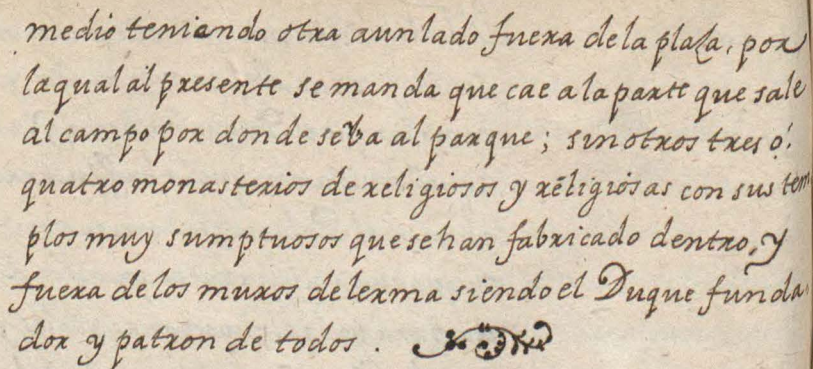 medio teniendo otra aun lado fuera dela plaza, por
laqual al presente se manda que cae a la parte que sale
al campo por donde se va al parque; sin otros tres o.
quatro monasterios de religiosos y religiosas con sus tem
plos muy sumptuosos que se han fabricado dentro, y
fuera de los muros de lerma siendo el Duque funda
dor y patron de todos.